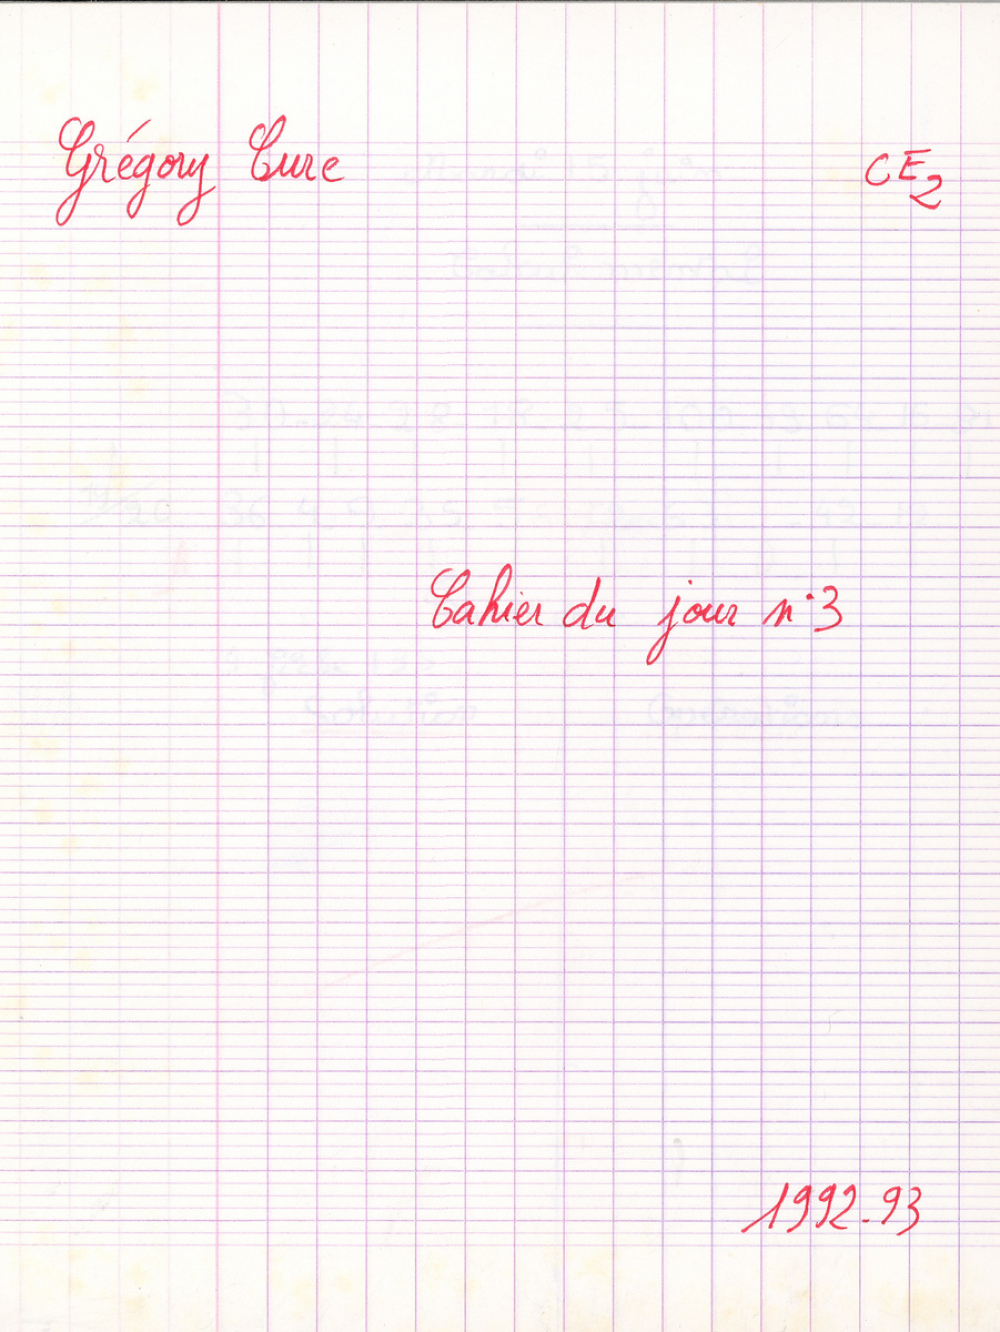 Grégory Cure
CE2
Cahier du jour n°3
1992-93